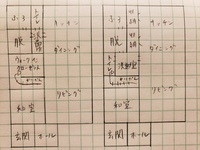 ふろ
トイレ
キッチン
脱
洗面所
ダイニング
ウォークイン
クローゼット
リビング
和室
玄関
ホール
ふろ
キッチン
収納
脱
収納
ダイニング
トイレ
洗面所
リビング
和室
玄関
ホール